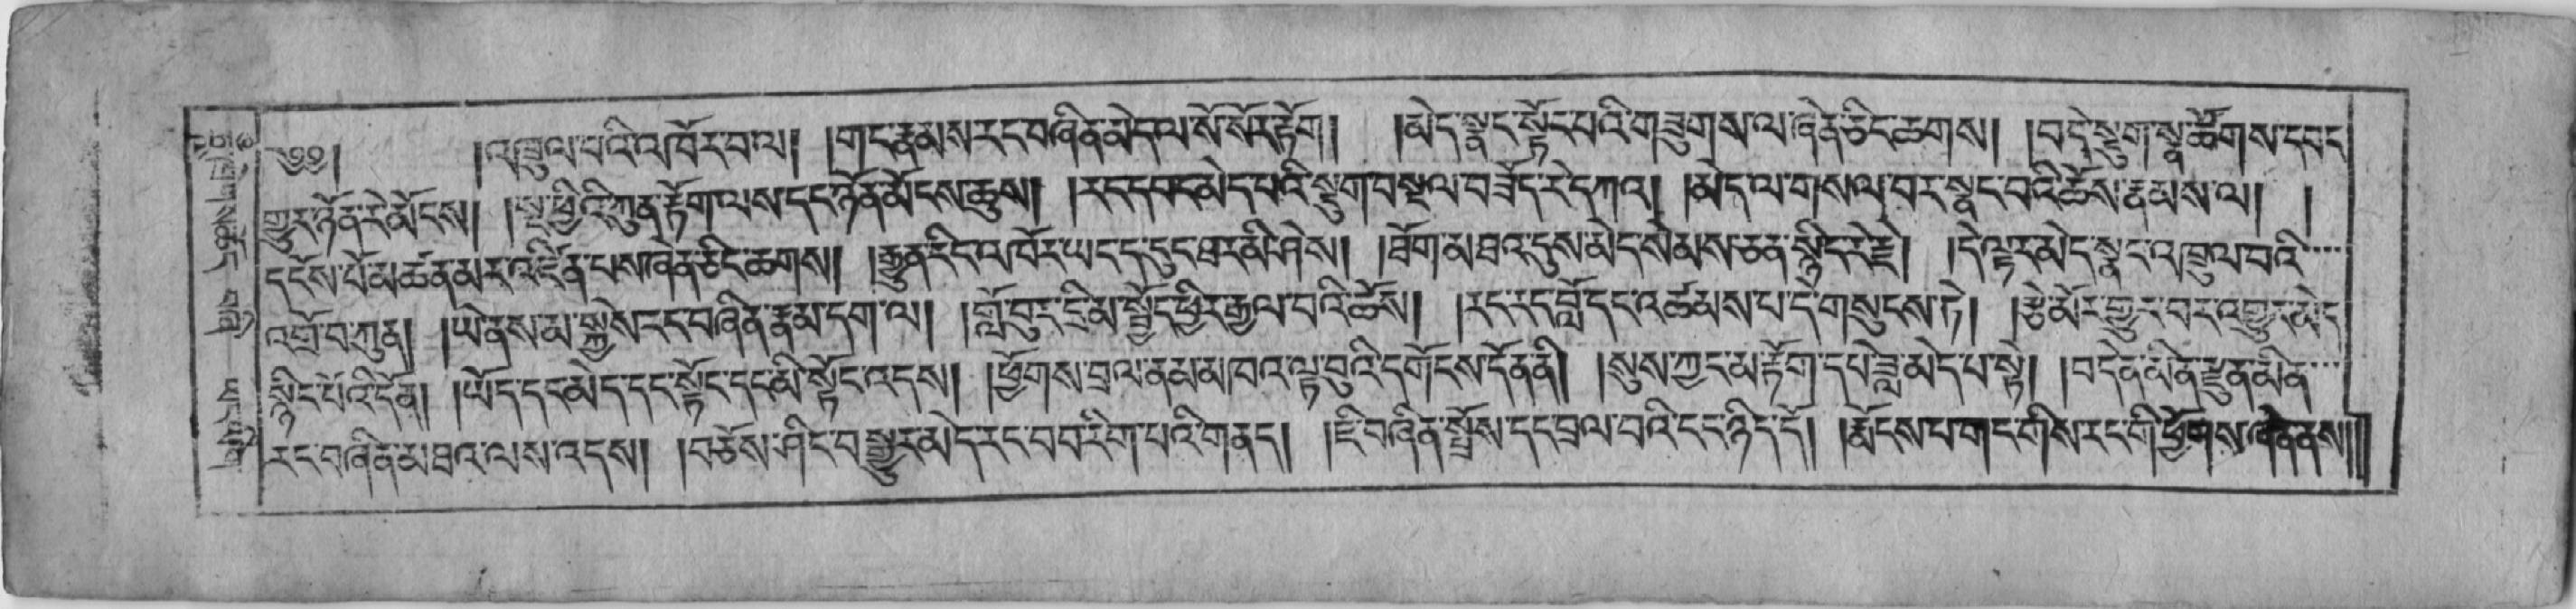 ༄༅། །འཁྲུལ་པའི་འཁོར་བ་ལ། །གང་རྣམས་རང་བཞིན་མེད་ལ་སོ་སོར་རྟོག། །མེད་སྣང་སྟོང་པའི་གཟུགས་ལ་ཞེན་ཅིང་ཆགས། །བདེ་སྡུག་སྣ་ཚོགས་དབང
གྱུར་ཉོན་རེ་མོངས། །སྔ་ཕྱིའི་ཀུན་རྟོག་ལས་དང་ཉོན་མོངས་རྒྱུས། །རང་དབང་མེད་པའི་སྡུག་བསྔལ་བཟོད་རེ་དཀའ། །མེད་ལ་གསལ་བར་སྣང་བའི་ཆོས་རྣམས་ལ། །
དངོས་པོ་མཚན་མར་འཛིན་པས་ཞེན་ཅིང་ཆགས། །རྒྱུན་རིང་འཁོར་ཡང་ད་དུང་ཐར་མི་ཤེས། །ཐོག་མ་ཐའ་དུས་མེད་སེམས་ཅན་སྙིང་རེ་རྗེ། །དེ་ལྟར་མེད་སྣང་འཁྲུལ་པའི་
འགྲོ་བ་ཀུན། །ཡེ་ནས་མ་སྐྱེས་རང་བཞིན་རྣམ་དག་ལ། །གློ་བུར་དྲི་མ་སྦྱོང་ཕྱིར་རྒྱལ་བའི་ཆོས། །རང་རང་བློ་དང་འཚམས་པ་དེ་གསུངས་ཏེ། །རྩེ་མོར་གྱུར་བར་འགྱུར་མེད
སྙིང་པོའི་དོན། །ཡོད་དང་མེད་དང་སྟོང་དང་མི་སྟོང་འདས། །ཕྱོགས་བྲལ་ནམ་མཁའ་ལྟ་བུའི་དགོངས་དོན་ནི། །སུས་ཀྱང་མ་རྟོག་དཔེ་ཟླ་མེད་པ་སྟེ། །བདེན་མིན་རྫུན་མིན་
རང་བཞིན་མ་ཐའ་ལས་འདས། །བཅོས་ཤིང་བསྒྱུར་མེད་རང་བབ་རིག་པའི་གནད། །ཇི་བཞིན་སྤྲོས་དང་བྲལ་བའི་ངང་ཉིད་དོ། །རྨོངས་པ་གང་གིས་རང་གི་ཕྱོགས་ཞེན་ནས།།།